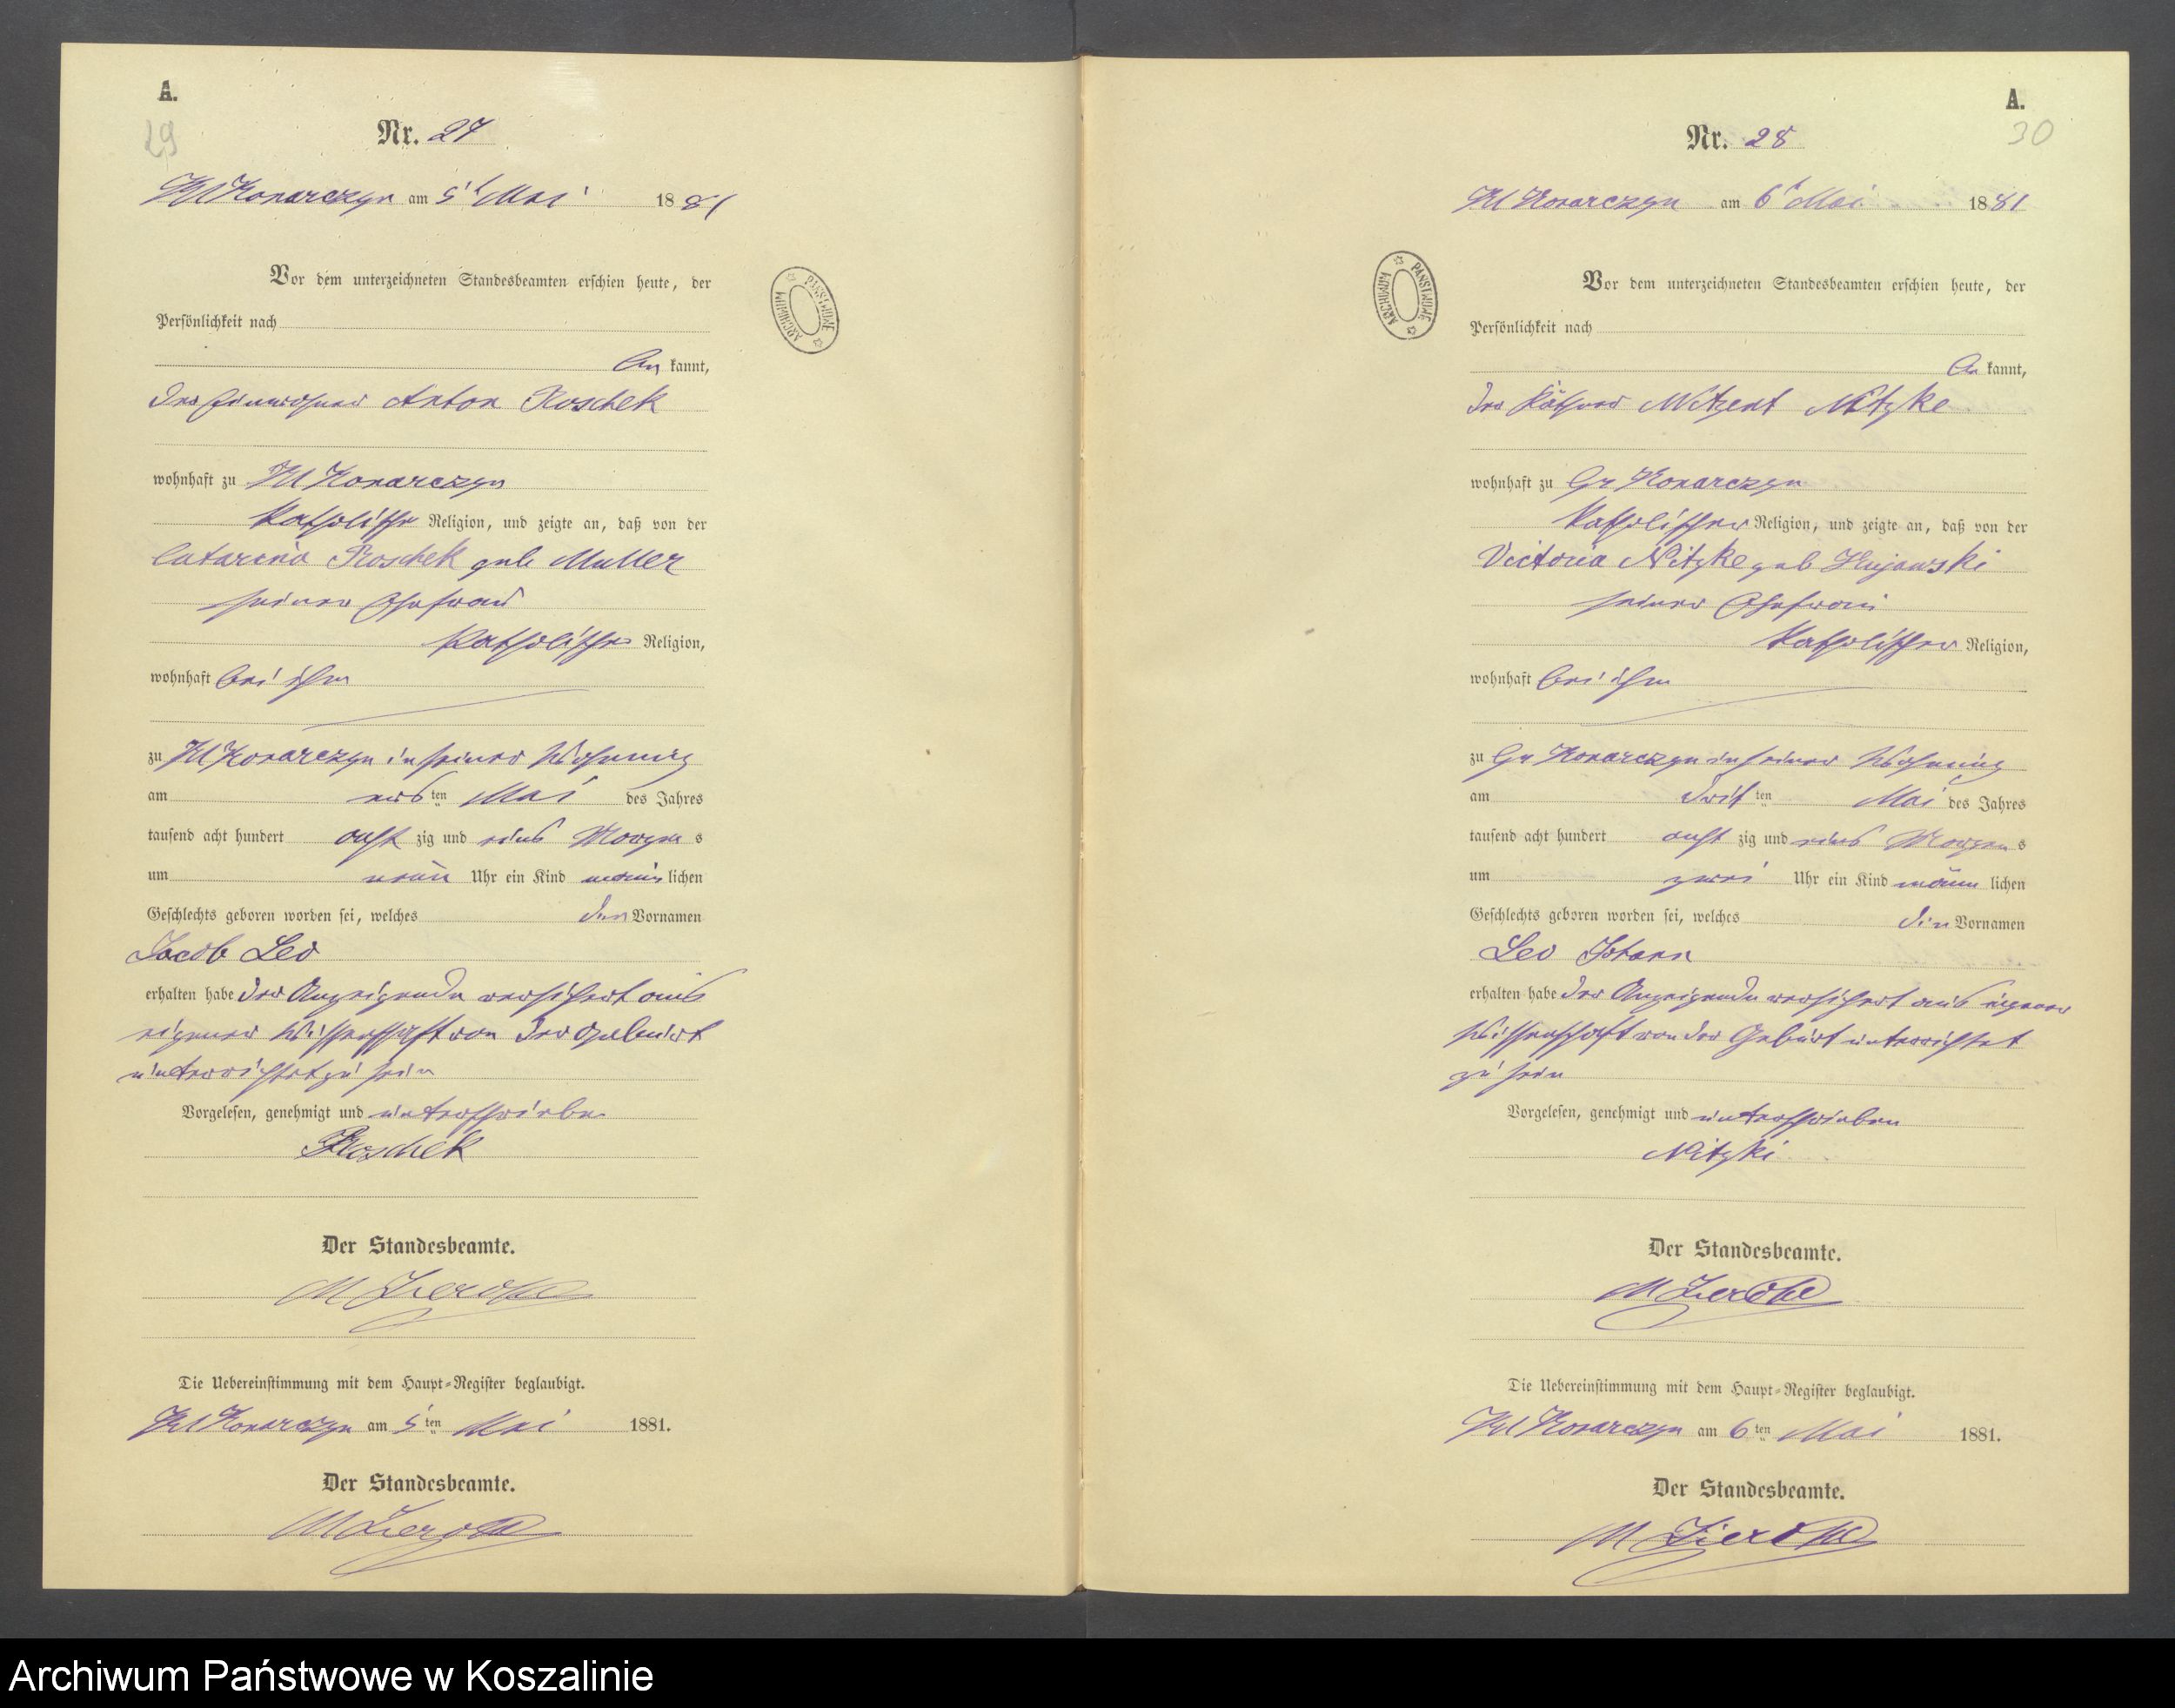 A.
29
Nr. 27
Kl Konarczyn am 5t Mai 1881
Vor dem unterzeichneten Standesbeamten erschien heute, der
Persönlichkeit nach
be kannt,
der Einwohner Anton Roschek
wohnhaft zu Kl Konarczyn
katholische Religion, und zeigte an, daß von der
Catarina Roschek geb Muller
seiner Ehefrau
katholische Religion,
wohnhaft bei ihm
zu Kl Konarczyn in seiner Wohnung
am ersten Mai des Jahres
tausend acht hundert acht zig und eins Morgens
um neun Uhr ein Kind männlichen
Geschlechts geboren worden sei, welches den Vornamen
Jacob Leo
erhalten habe der Anzeigende versichert aus
eigener Wissenschaft von der Geburt
unterrichtet zu sein
Vorgelesen, genehmigt und unterschrieben
Roschek
Der Standesbeamte.
M
Die Uebereinstimmung mit dem Haupt-Register beglaubigt.
Kl Konarczyn am 5ten Mai 1881.
Der Standesbeamte.
M
ARCHIWUM PAŃSTWOWE
A.
30
Nr. 28
Kl Konarczyn am 6t Mai 1881
Vor dem unterzeichneten Standesbeamten erschien heute, der
Persönlichkeit nach
be kannt,
der Käthner Nitzke
wohnhaft zu Gr Konarczyn
katholischer Religion, und zeigte an, daß von der
Victoria Nitzke geb Kujawski
seiner Ehefrau
katholischer Religion,
wohnhaft bei ihm
zu Gr Konarczyn in seiner Wohnung
am dritten Mai des Jahres
tausend acht hundert acht zig und eins Morgens
um zwei Uhr ein Kind männlichen
Geschlechts geboren worden sei, welches die Vornamen
Leo Johann
erhalten habe der Anzeigende versichert aus eigener
Wissenschaft von der Geburt unterrichtet
zu sein
Vorgelesen, genehmigt und unterschrieben
Nitzki
Der Standesbeamte.
M
Die Uebereinstimmung mit dem Haupt-Register beglaubigt.
Kl Konarczyn am 6ten Mai 1881.
Der Standesbeamte.
M
ARCHIWUM PAŃSTWOWE
Archiwum Państwowe w Koszalinie